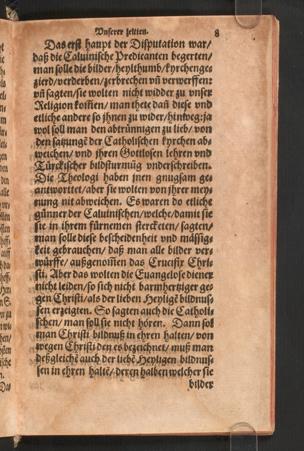 Vnserer zeiten. 8
Das erst haupt der Disputation war/
daß die Caluinische Predicanten begerten/
man solle die bilder/heylthumb/kyrchenge-
zierd/verderben/zerbrechen vñ verwerffen:
vñ sagten/sie wolten nicht widder zu vnser
Religion kom̃en/man thete dañ diese vnd
etliche andere so jhnen zu wider/hinweg: ja
wol soll man den abtrünnigen zu lieb/von
den satzungē der Catholischen kyrchen ab-
weichen/vnd jhren Gottlosen lehren vnd
Türckischer bildsturmũg vnderschreiben.
Die Theologi haben jnen gnugsam ge-
antwortet/aber sie wolten von jhrer mey-
nung nit abweichen. Es waren do etliche
günner der Caluinischen/welche/damit sie
sie in ihrem fürnemen sterckten/sagten/
man solle diese bescheidenheit vnd mässig-
keit gebrauchen/daß man alle bilder ver-
würffe/außgenom̃en das Crucifix Chri-
sti. Aber das wolten die Euangelose diener
nicht leiden/so sich nicht barmhertziger ge-
gen Christi/als der lieben Heyligē bildnus-
sen erzeigten. So sagten auch die Catholi-
schen/man soll sie nicht hören. Dann sol
man Christi bildnuß in ehren halten/von
wegen Christi den es bezeichnet/muß man
deßgleichē auch der liebē Heyligen bildnus-
sen in ehren haltē/deren halben welcher sie
bilder